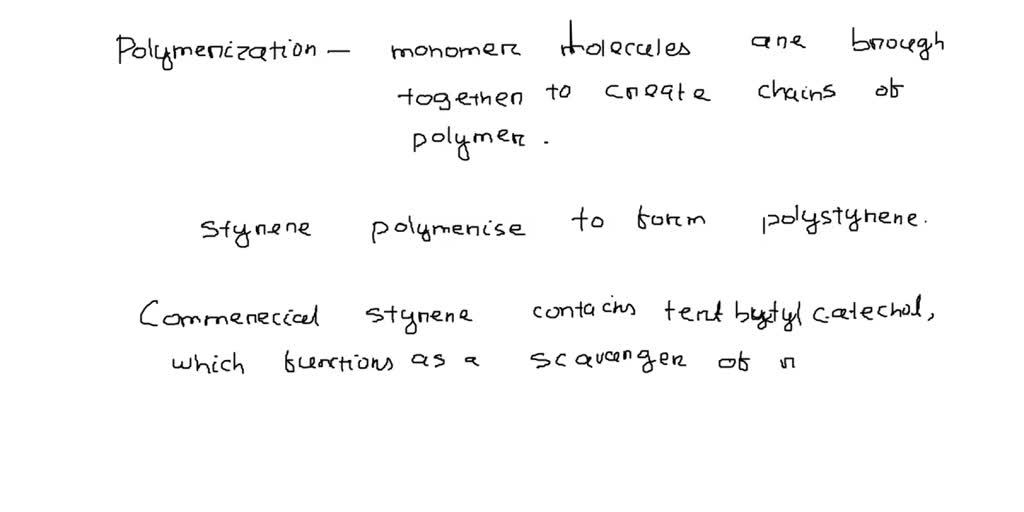 Polymerization — monomer molecules are brough
together to create chains of
polymer.
styrene polymerise to form polystyrene.
Commerecial styrene contains tert bytyl catechol,
which functions as a scavanger of r